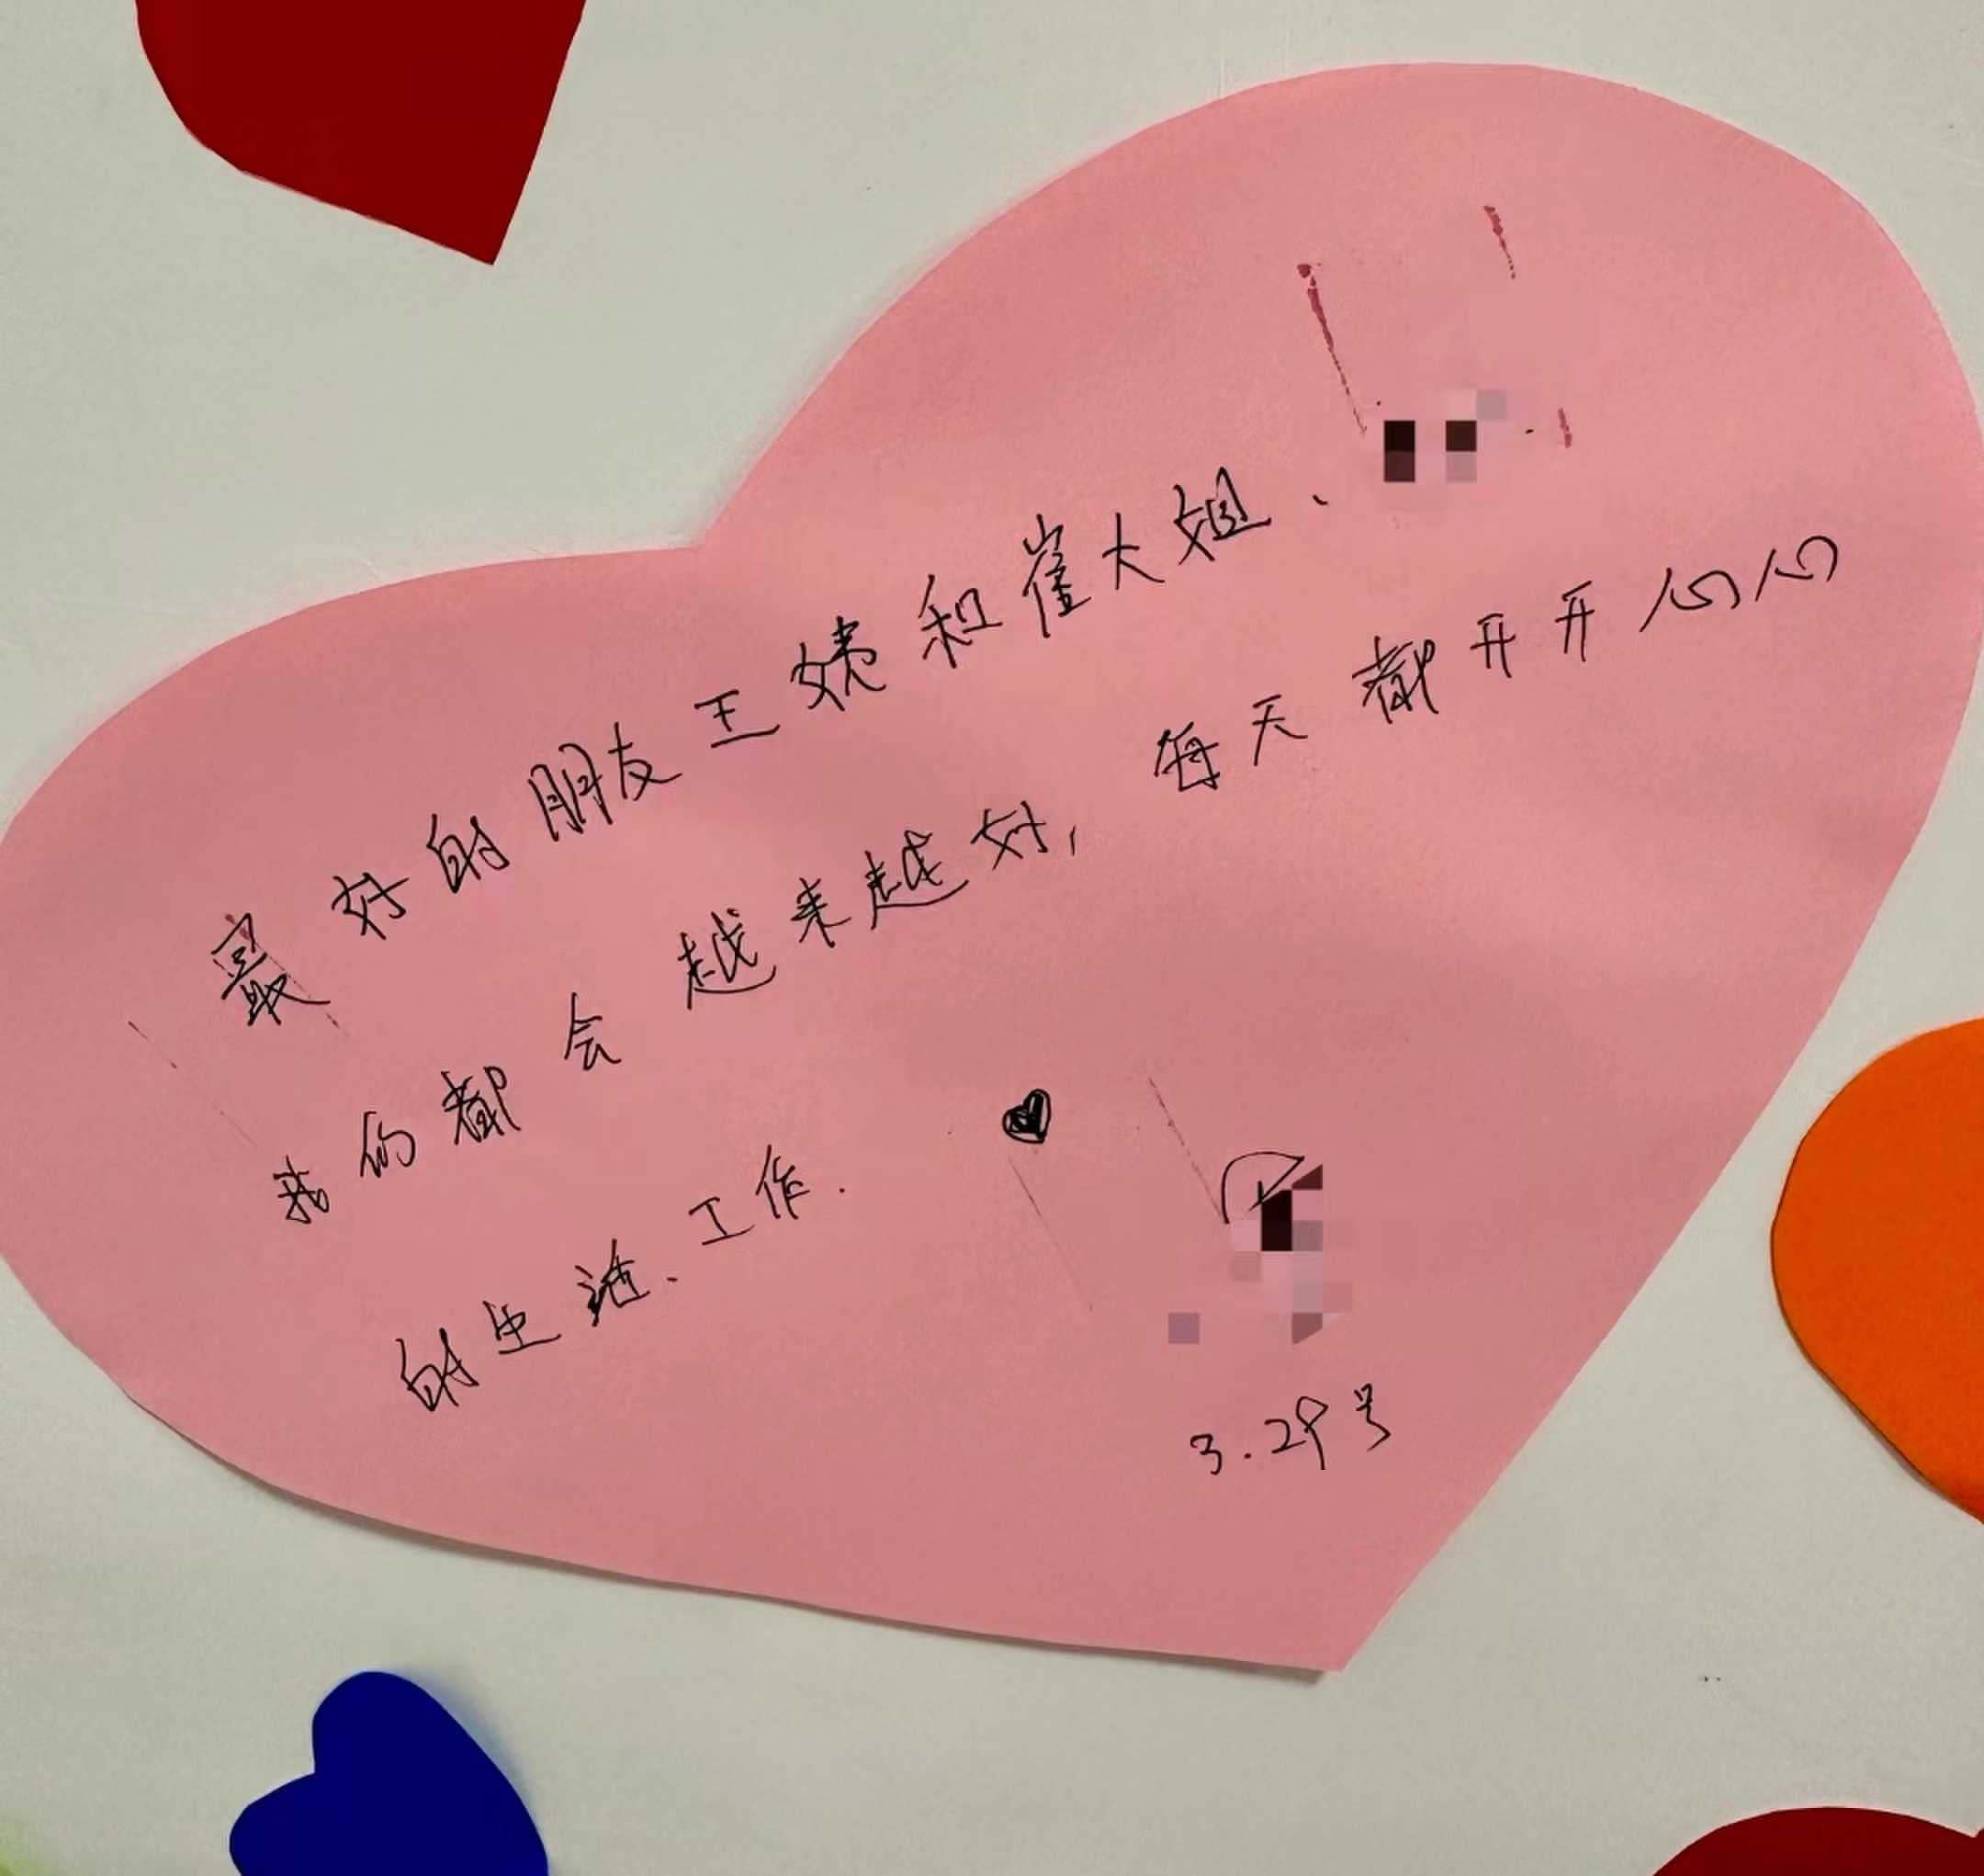 最好的朋友王姨和崔大姐、
我们都会越来越好, 每天都开开心心
的生活、工作.
3.29号